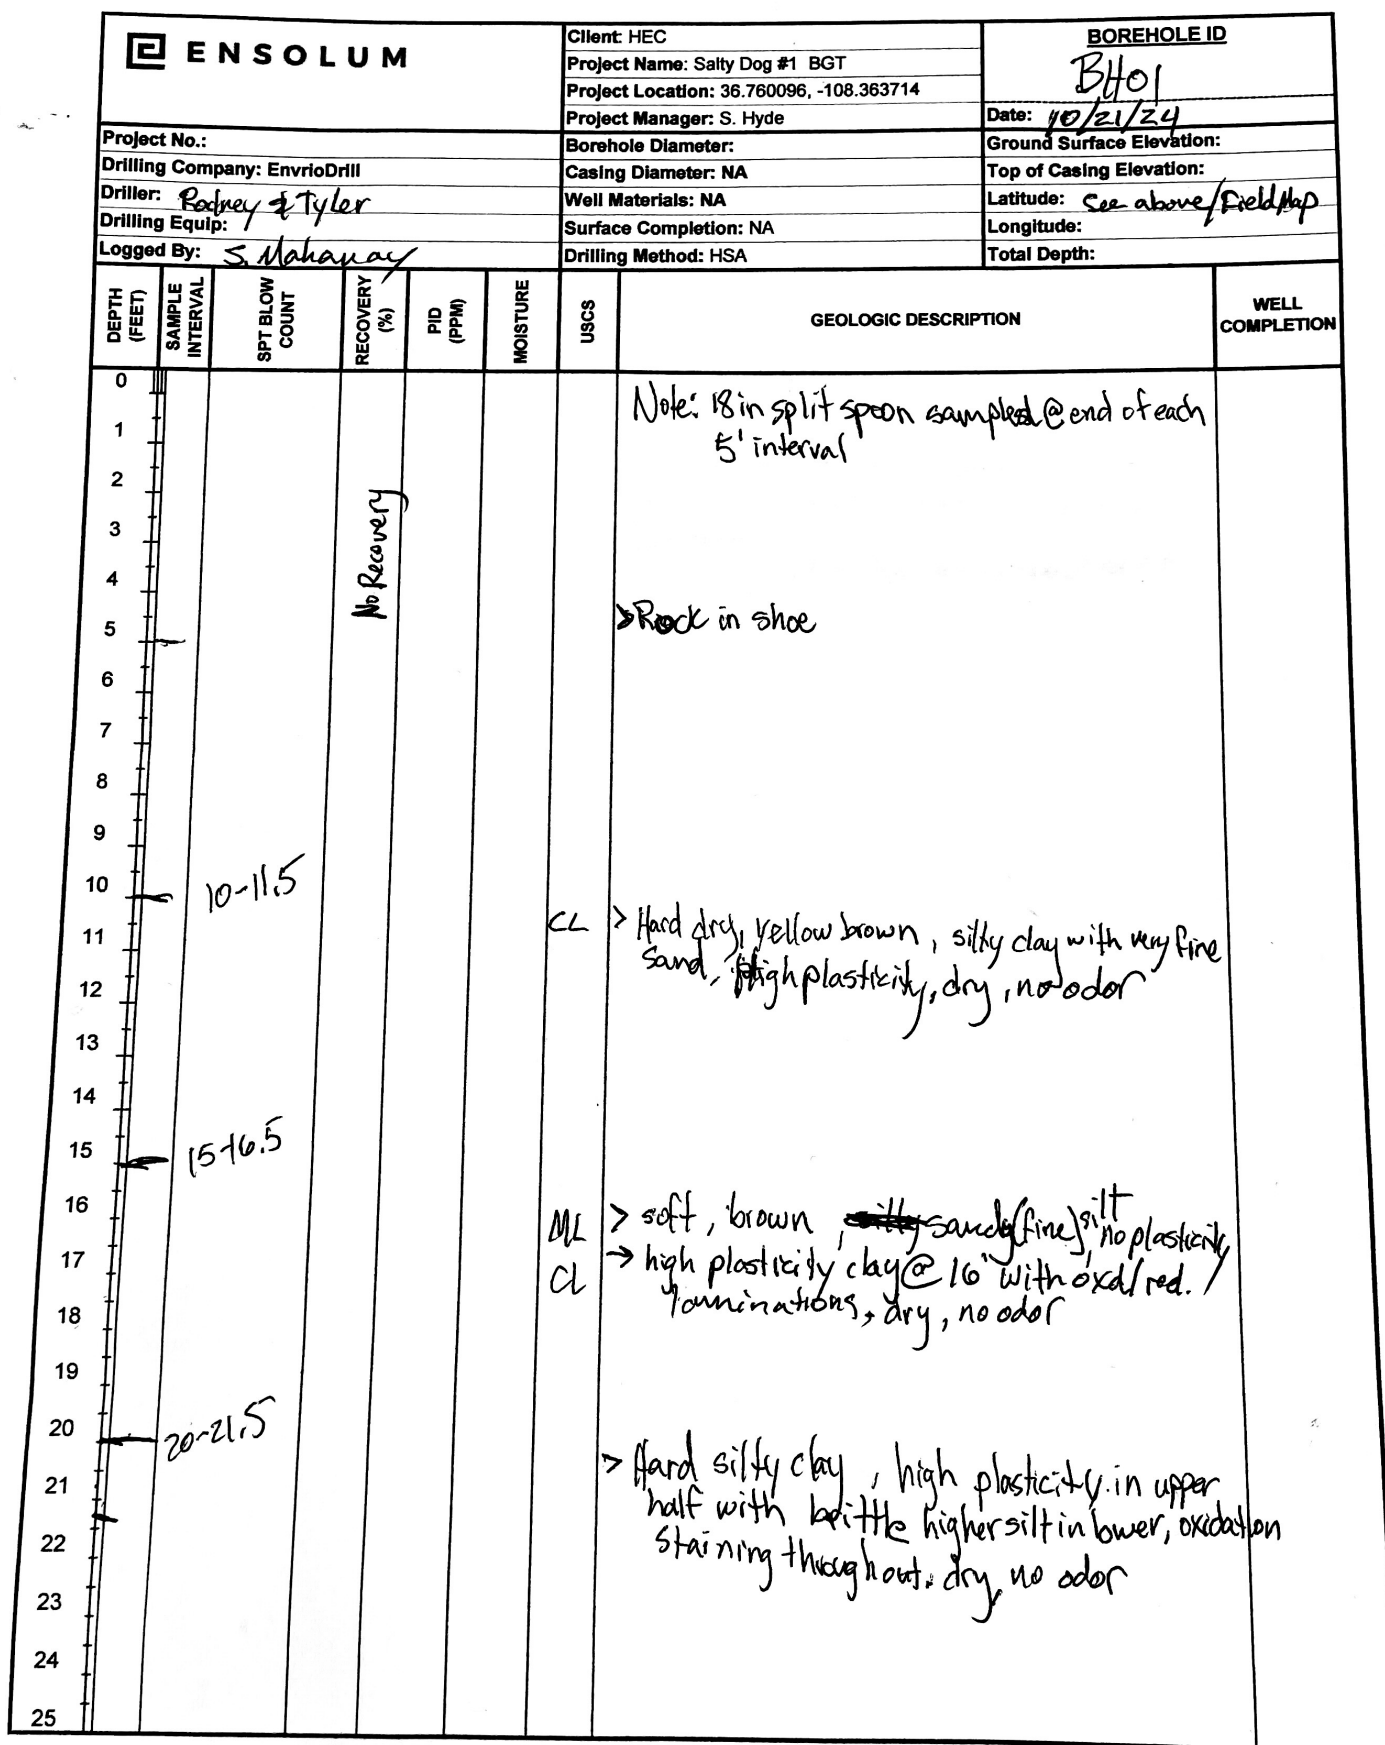 ENSOLUM
Client: HEC
Project Name: Salty Dog #1 BGT
Project Location: 36.760096, -108.363714
Project Manager: S. Hyde
BOREHOLE ID
BH01
Date: 10/21/24
Project No.:
Drilling Company: EnvrioDrill
Driller: Rodney & Tyler
Drilling Equip:
Logged By: S. Mahanay
Borehole Diameter:
Casing Diameter: NA
Well Materials: NA
Surface Completion: NA
Drilling Method: HSA
Ground Surface Elevation:
Top of Casing Elevation:
Latitude: See above/Field Map
Longitude:
Total Depth:
DEPTH (FEET)
SAMPLE INTERVAL
SPT BLOW COUNT
RECOVERY (%)
PID (PPM)
MOISTURE
USCS
GEOLOGIC DESCRIPTION
WELL COMPLETION
0
Note: 18 in split spoon sampled @ end of each
1
5' interval
2
No Recovery
3
4
5
>Rock in shoe
6
7
8
9
10
10-11.5
CL
> Hard dry, yellow brown, silty clay with very fine
11
sand, High plasticity, dry, no odor
12
13
14
15
15-16.5
16
ML
> soft, brown, sandy (fine) silt, no plasticity
17
CL
→ high plasticity clay @ 16' with oxd/red.
laminations, dry, no odor
18
19
20
20-21.5
> Hard silty clay, high plasticity in upper
21
half with brittle higher silt in lower, oxidation
22
staining throughout. dry, no odor
23
24
25